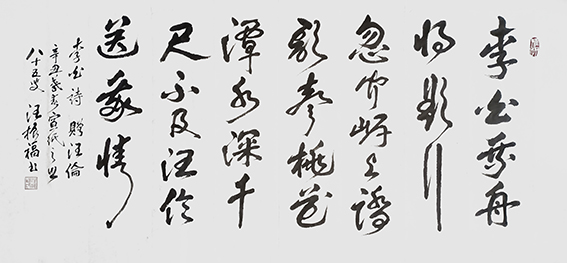 李白乘舟
将欲行
忽闻岸上踏
歌声桃花
潭水深千
尺不及汪伦
送我情
李白诗 赠汪伦
辛丑
八十五叟 汪振福书